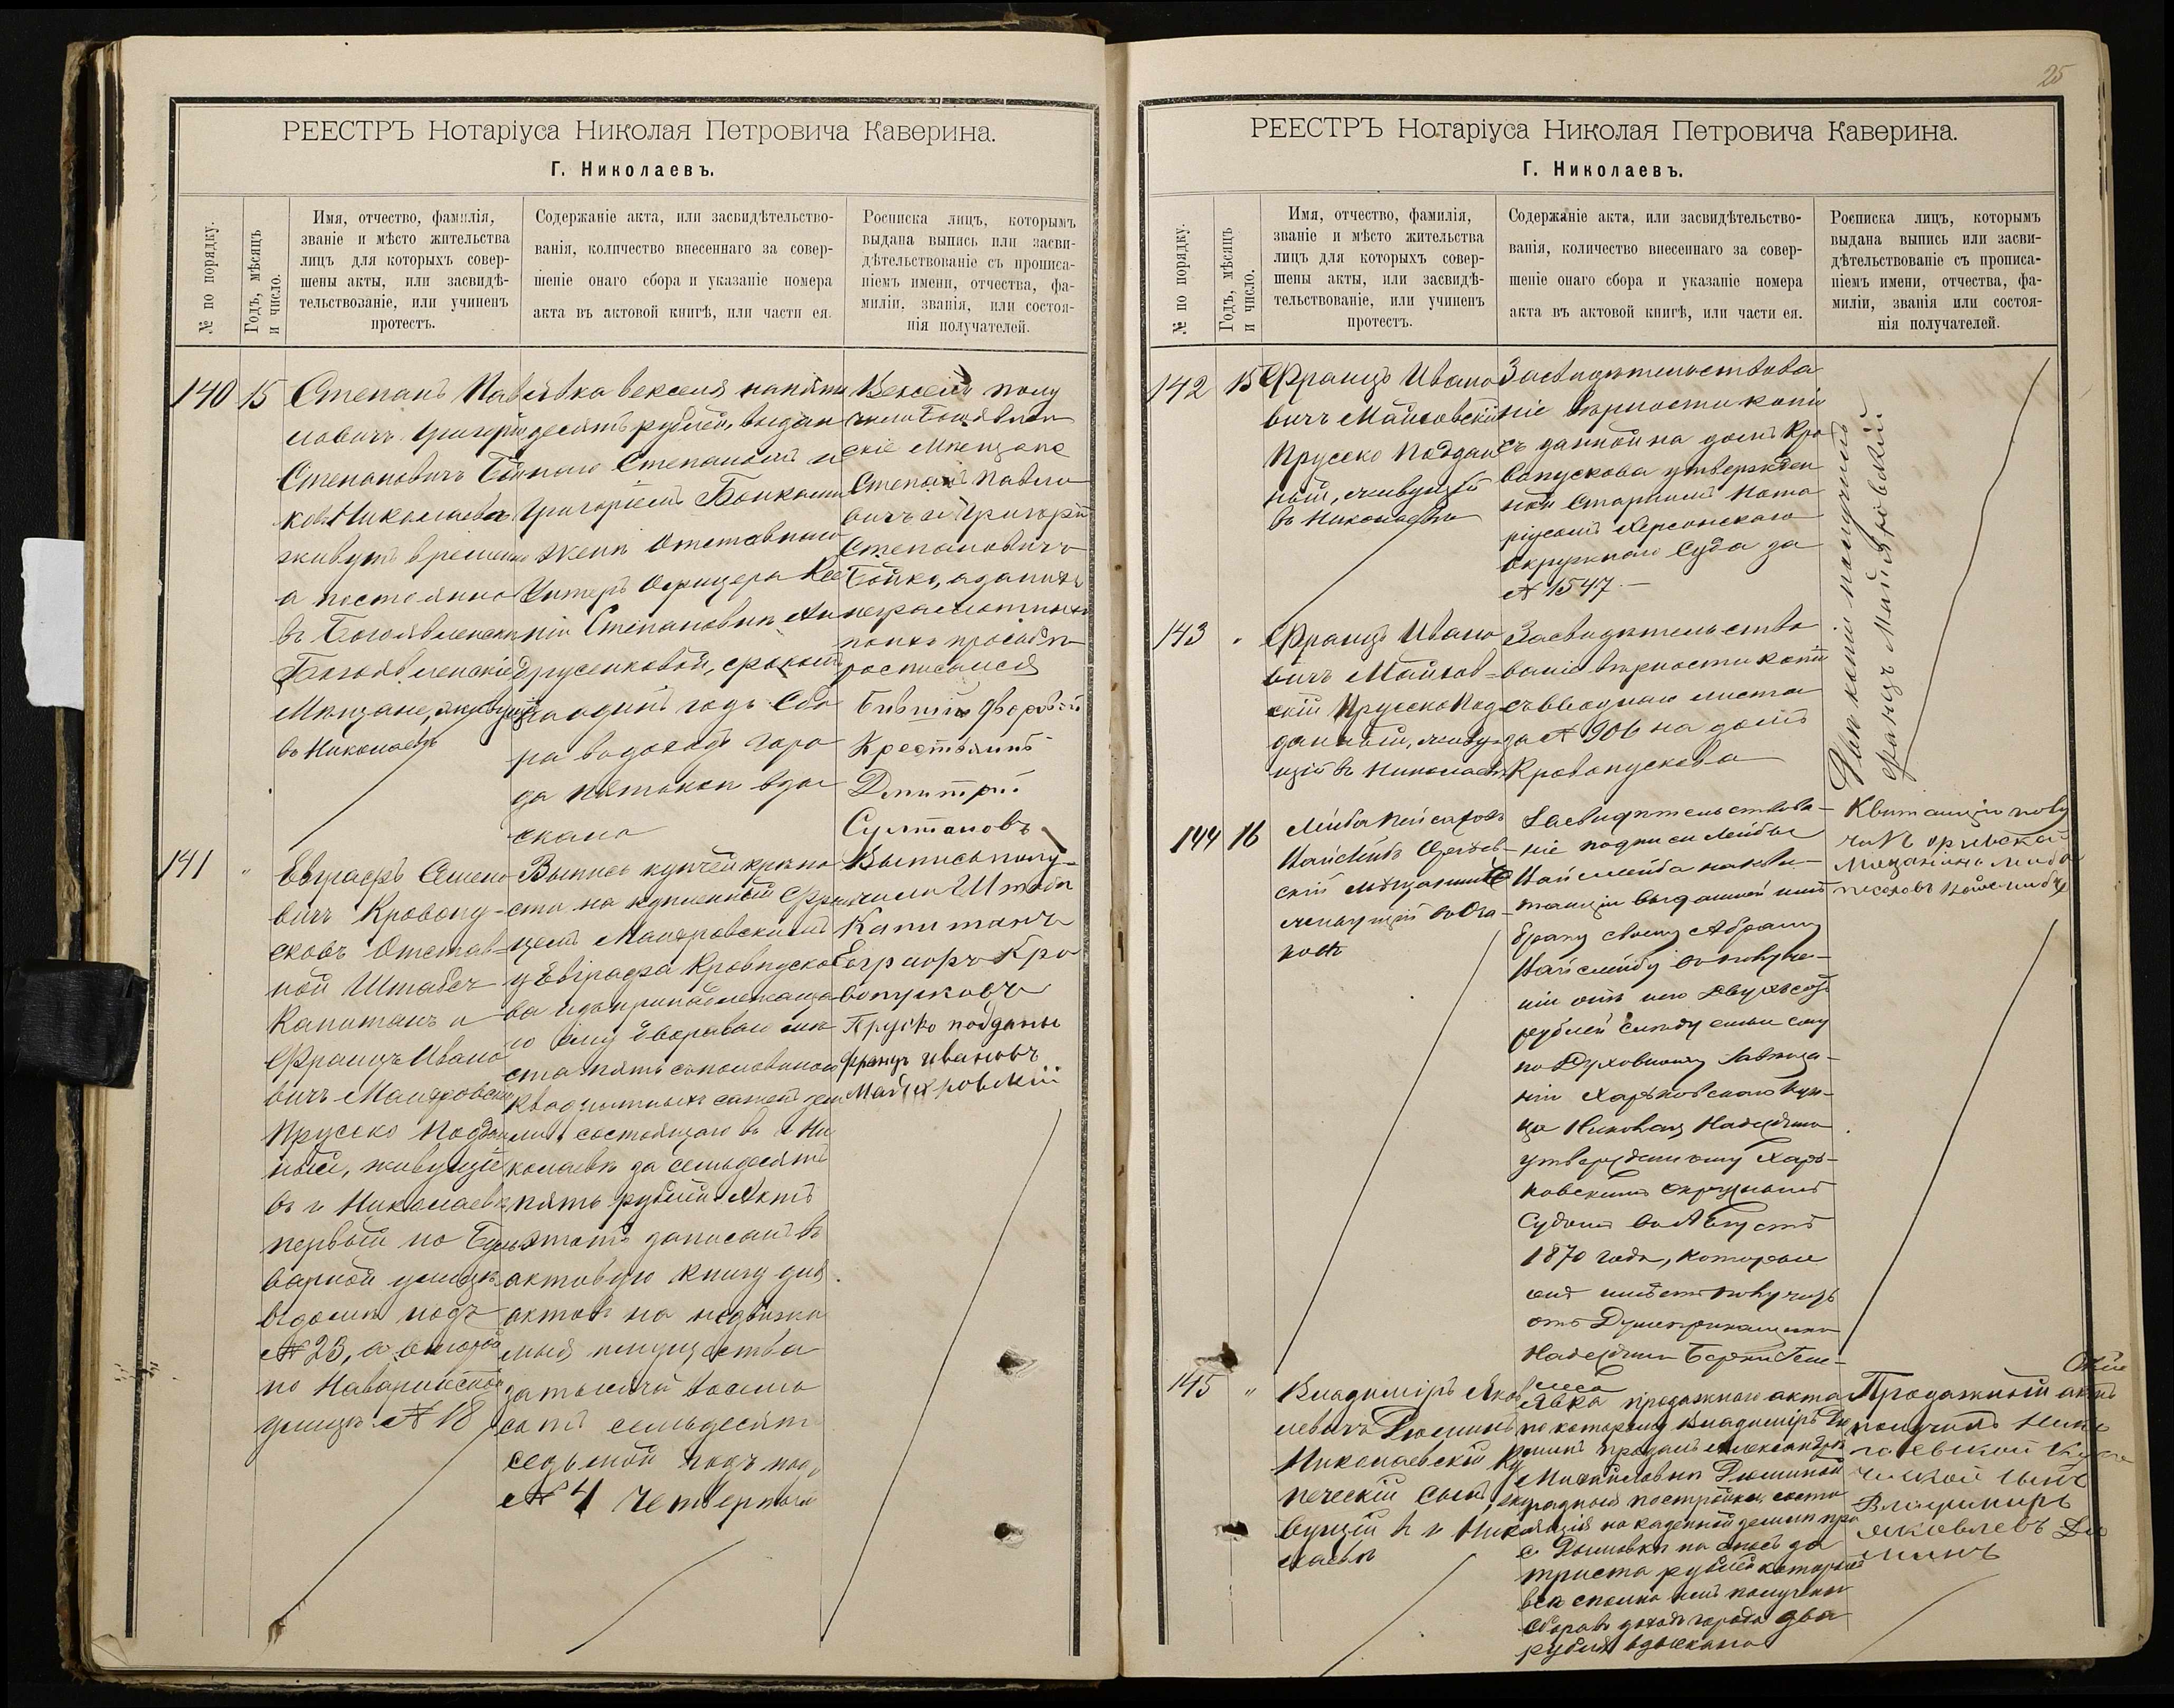 РЕЕСТРЪ Нотаріуса Николая Петровича Каверина.
Г. Николаевъ.
№ по порядку.
Годъ, мѣсяцъ
и число.
Имя, отчество, фамилія,
званіе и мѣсто жительства
лицъ для которыхъ совер-
шены акты, или засвидѣ-
тельствованіе, или учиненъ
протестъ.
Содержаніе акта, или засвидѣтельство-
ванія, количество внесеннаго за совер-
шеніе онаго сбора и указаніе номера
акта въ актовой книгѣ, или части ея.
Росписка лицъ, которымъ
выдана выпись или засви-
дѣтельствованіе съ прописа-
ніемъ имени, отчества, фа-
миліи, званія, или состоя-
нія получателей.
140
15
Степанъ Пав
ловичъ Григорій
Степановичъ Бой
ко въ Николаевѣ
живутъ временно
а постоянно
въ Богоявленскѣ
Богоявленскіе
Мѣщане, живущіе
въ Николаевѣ
Явка векселя на пять
десятъ рублей, выдан
наго Степаномъ и
Григоріемъ Бойками
женѣ Отставнаго
Унтеръ Офицера
Степановнѣ Ан
друсенковой, срокомъ
на одинъ годъ Сбо
ра въ доходъ горо
да пять коп взы
скано
Вексель полу
чили Богоявлен
скіе Мѣщане
Степанъ Павло
вичъ и Григорій
Степановичъ
Бойко, а за нихъ
неграмотныхъ
по ихъ просьбѣ
росписался
Бывшій дворовый
Крестьянинъ
Дмитрій
Султановъ
141
"
Евграфъ Семено
вичъ Кровопу-
сковъ Отстав-
ной Штабсъ
Капитанъ и
Францъ Ивано
вичъ Майхровскій
Прусско Поддан
ный, живущіе
въ г Николаевѣ
первый по Буль
варной улицѣ
въ домѣ подъ
№ 23, а второй
по Наваринской
улицѣ № 18
Выпись купчей крѣпо
сти на купленный Фран
цемъ Майхровскимъ
у Евграфа Кровопуско
ва и принадлежаща
го ему
ста пять съ половиною
квадратныхъ саженъ зем
ли, состоящаго въ г Ни
колаевѣ за семьдесятъ
пять рублей. Актъ
этотъ записанъ въ
актовую книгу для
актовъ на недвижи
мыя имущества
за тысяча восемь
сотъ семьдесятъ
седьмой годъ подъ
№ 4 четвертый
Выпись полу-
чили Штабсъ
Капитанъ
Евграфъ Кро
вопусковъ
Прусско подданы
Францъ Ивановъ
Майхровскій
25
РЕЕСТРЪ Нотаріуса Николая Петровича Каверина.
Г. Николаевъ.
№ по порядку.
Годъ, мѣсяцъ
и число.
Имя, отчество, фамилія,
званіе и мѣсто жительства
лицъ для которыхъ совер-
шены акты, или засвидѣ-
тельствованіе, или учиненъ
протестъ.
Содержаніе акта, или засвидѣтельство-
ванія, количество внесеннаго за совер-
шеніе онаго сбора и указаніе номера
акта въ актовой книгѣ, или части ея.
Росписка лицъ, которымъ
выдана выпись или засви-
дѣтельствованіе съ прописа-
ніемъ имени, отчества, фа-
миліи, званія или состоя-
нія получателей.
142
15
Францъ Ивано
вичъ Майховскій
Прусско Поддан
ный, живущій
въ Николаевѣ
Засвидѣтельствова
ніе вѣрности копіи
съ данной на домъ Кро
вопускова утвержден
ной Старшимъ Нота
ріусомъ Херсонскаго
Окружнаго Суда за
№ 1547.—
Двѣ копіи получилъ
Францъ Майхровскій
143
"
Францъ Ивано
вичъ Майхов-
скій Прусско Под
данный, живу
щій въ Николаевѣ
Засвидѣтельство
ваніе вѣрности копіи
съ вводнаго листа
за № 906 на домъ
Кровопускова
144
16
Лейба Пейсаховъ
Вайслейбъ
скій мѣщанинъ
живущій въ Оча-
ковѣ
Засвидѣтельствова-
ніе подписи Лейбы
Вайслейба на кви-
танціи выданной имъ
брату своему Абраму
Вайслейбу въ получе-
ніи отъ него двухсотъ
рублей слѣдуемыхъ ему
по Духовному Завѣща-
нію Харьковскаго Куп-
ца
утвержденному Харь-
ковскимъ Окружнымъ
Судомъ въ Августѣ
1870 года, которые
онъ имѣетъ получить
отъ Душеприкащика
Квитанцію полу
чилъ
Мещанинъ Либа
145
"
Владиміръ Яков
левичъ Дюминъ
Николаевскій Ку
печескій сынъ, жи
вущій въ г Нико
лаевѣ
Явка продажнаго акта
по которому Владиміръ Дю
минъ продалъ Александрѣ
Михайловнѣ Дюминой
постройки, состо
ящія на казенной землѣ при
на сносъ за
триста рублей которые
всѣ сполна имъ получены
Сбора въ доходъ города два
рубля взыскано
Продажный актъ
получилъ Нико
лаевской Купе
ческой сынъ
Владимиръ
Яковлевъ Дю
минъ